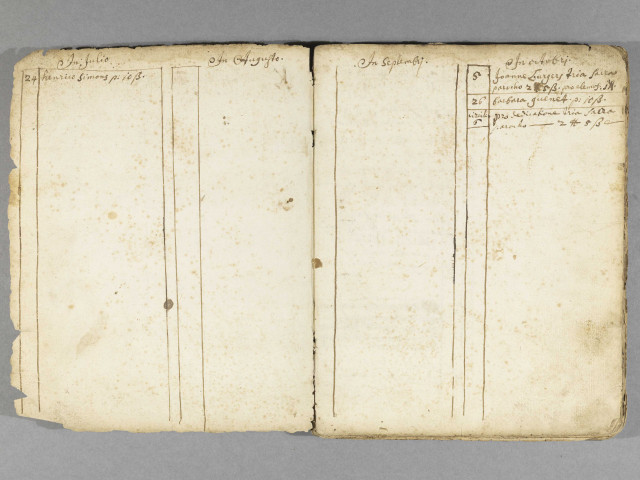 In Julio
24 henrici Simons p. 10 ß.
In Augusto.
In Septembrj.
In octobrj.
5 Joanne Zurgers tria sacra
parocho 2 5 ß.
26 barbara quenet p. 10 ß.
5 pro dedicatione tria sacra
parocho — 2 5 ß